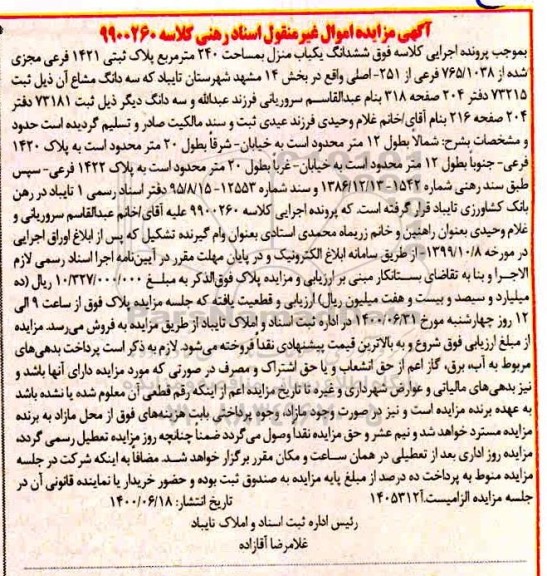 آگهی مزایده اموال غیرمنقول اسناد رهنی کلاسه ۹۹۰۰۲۶۰
بموجب پرونده اجرایی کلاسه فوق ششدانگ یکباب منزل بمساحت ۲۴۰ مترمربع پلاک ثبتی ۱۴۲۱ فرعی مجزی
شده از ۷۶۵/۱۰۳۸ فرعی از ۲۵۱- اصلی واقع در بخش ۱۴ مشهد شهرستان تایباد که سه دانگ مشاع آن ذیل ثبت
۷۳۲۱۵ دفتر ۲۰۴ صفحه ۳۱۸ بنام عبدالقاسم سروریانی فرزند عبدالله و سه دانگ دیگر ذیل ثبت ۷۳۱۸۱ دفتر
۲۰۴ صفحه ۲۱۶ بنام آقای/خانم غلام وحیدی فرزند عیدی ثبت و سند مالکیت صادر و تسلیم گردیده است حدود
و مشخصات بشرح: شمالا بطول ۱۲ متر محدود است به خیابان- شرقا بطول ۲۰ متر محدود است به پلاک ۱۴۲۰
فرعی- جنوبا بطول ۱۲ متر محدود است به خیابان- غربا بطول ۲۰ متر محدود است به پلاک ۱۴۲۲ فرعی- سپس
طبق سند رهنی شماره ۱۵۴۲-۱۳۸۶/۱۲/۱۳ و سند شماره ۱۲۵۵۳-۹۵/۸/۱۵ دفتر اسناد رسمی ۱ تایباد در رهن
بانک کشاورزی تایباد قرار گرفته است. که پرونده اجرایی کلاسه ۹۹۰۰۲۶۰ علیه آقای/خانم عبدالقاسم سروریانی و
غلام وحیدی بعنوان راهنین و خانم زریماه محمدی استادی بعنوان وام گیرنده تشکیل که پس از ابلاغ اوراق اجرایی
در مورخه ۱۳۹۹/۱۰/۸- از طریق سامانه ابلاغ الکترونیک و در پایان مهلت مقرر در آیین‌نامه اجرا اسناد رسمی لازم
الاجرا و بنا به تقاضای بستانکار مبنی بر ارزیابی و مزایده پلاک فوق‌الذکر به مبلغ ۱۰/۳۲۷/۰۰۰/۰۰۰ ریال (ده
میلیارد و سیصد و بیست و هفت میلیون ریال) ارزیابی و قطعیت یافته که جلسه مزایده پلاک فوق از ساعت ۹ الی
۱۲ روز چهارشنبه مورخ ۱۴۰۰/۰۶/۳۱ در اداره ثبت اسناد و املاک تایباد از طریق مزایده به فروش می‌رسد. مزایده
از مبلغ ارزیابی فوق شروع و به بالاترین قیمت پیشنهادی نقدا فروخته می‌شود. لازم به ذکر است پرداخت بدهی‌های
مربوط به آب، برق، گاز اعم از حق انشعاب و یا حق اشتراک و مصرف در صورتی که مورد مزایده دارای آنها باشد و
نیز بدهی‌های مالیاتی و عوارض شهرداری و غیره تا تاریخ مزایده اعم از اینکه رقم قطعی آن معلوم شده یا نشده باشد
به عهده برنده مزایده است و نیز در صورت وجود مازاد، وجوه پرداختی بابت هزینه‌های فوق از محل مازاد به برنده
مزایده مسترد خواهد شد و نیم عشر و حق مزایده نقدا وصول می‌گردد ضمنا چنانچه روز مزایده تعطیل رسمی گردد،
مزایده روز اداری بعد از تعطیلی در همان ساعت و مکان مقرر برگزار خواهد شد. مضافا به اینکه شرکت در جلسه
مزایده منوط به پرداخت ده درصد از مبلغ پایه مزایده به صندوق ثبت بوده و حضور خریدار یا نماینده قانونی آن در
جلسه مزایده الزامیست.آ۱۴۰۵۳۱۲ تاریخ انتشار: ۱۴۰۰/۰۶/۱۸
رئیس اداره ثبت اسناد و املاک تایباد
غلامرضا آقازاده